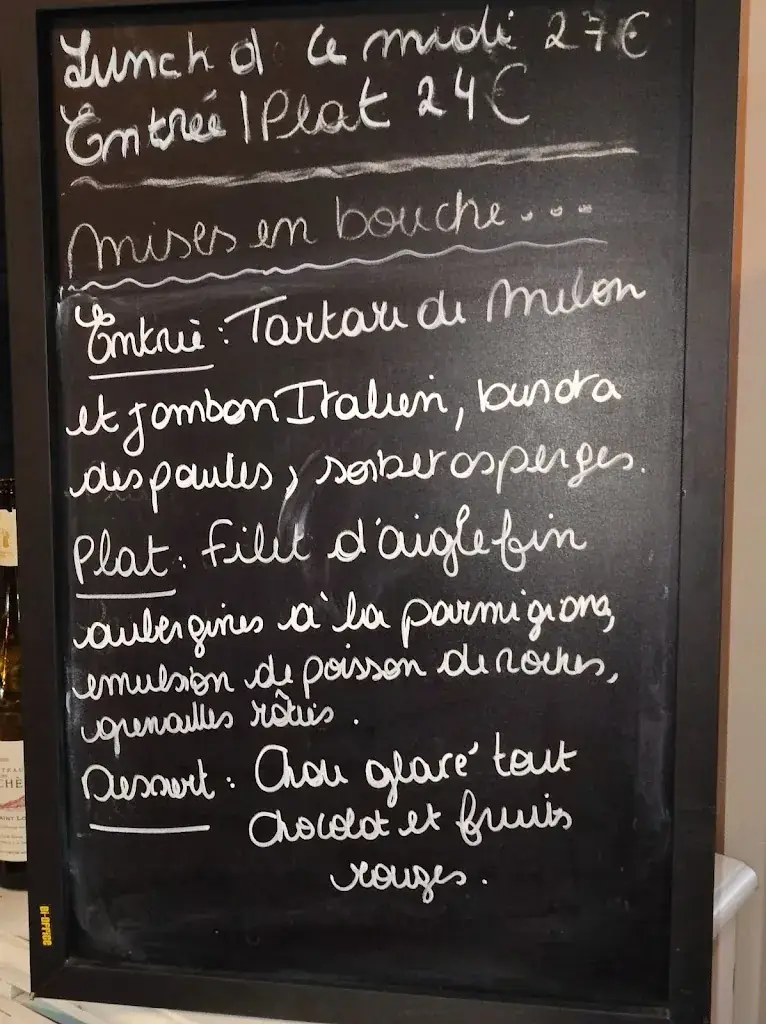 Lunch d ce midi 27€
Entrée | Plat 24€
mises en bouche...
Entrée : Tartare de Melon
et jambon Italien, burrata
des pouilles, sorbet asperges.
Plat : Filet d'aiglefin
aubergines à la parmigiana,
emulsion de poisson de roches,
grenailles rôties.
Dessert : Chou glacé tout
chocolat et fruits
rouges.
BI-OFFICE